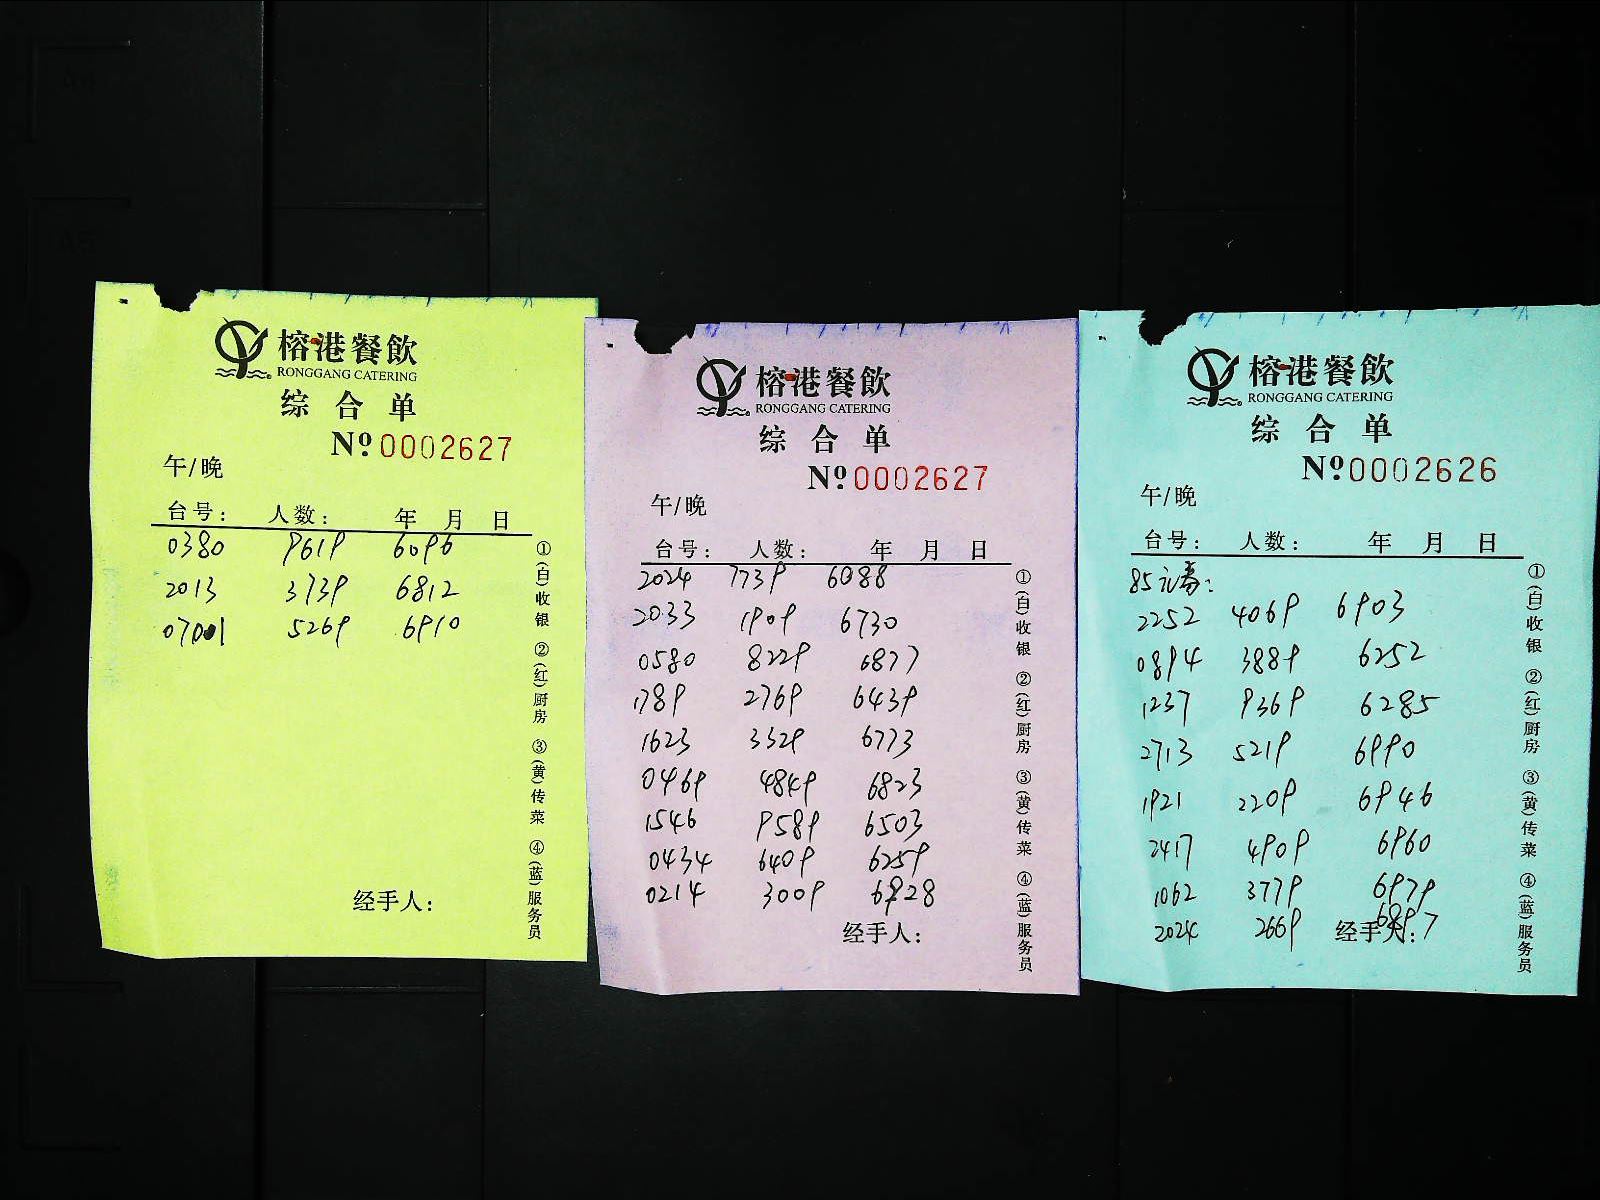 榕港餐飲
RONGGANG CATERING
综合单
Nº 0002627
午/晚
台号: 人数: 年 月 日
0380 9619 6096
2013 3739 6812
07001 5269 6910
经手人:
①(白)收银 ②(红)厨房 ③(黄)传菜 ④(蓝)服务员
榕港餐飲
RONGGANG CATERING
综合单
Nº 0002627
午/晚
台号: 人数: 年 月 日
2024 7739 6088
2033 1909 6730
0580 8229 6877
1789 2769 6439
1623 3329 6773
0469 4849 6823
1546 9589 6503
0434 6409 6259
0214 3009 6928
经手人:
①(白)收银 ②(红)厨房 ③(黄)传菜 ④(蓝)服务员
榕港餐飲
RONGGANG CATERING
综合单
Nº 0002626
午/晚
台号: 人数: 年 月 日
85元券:
2252 4069 6903
0894 3889 6252
1237 9369 6285
2713 5219 6990
1921 2209 6946
2417 4909 6960
1062 3779 6979
2024 2669 6897
经手人:
①(白)收银 ②(红)厨房 ③(黄)传菜 ④(蓝)服务员